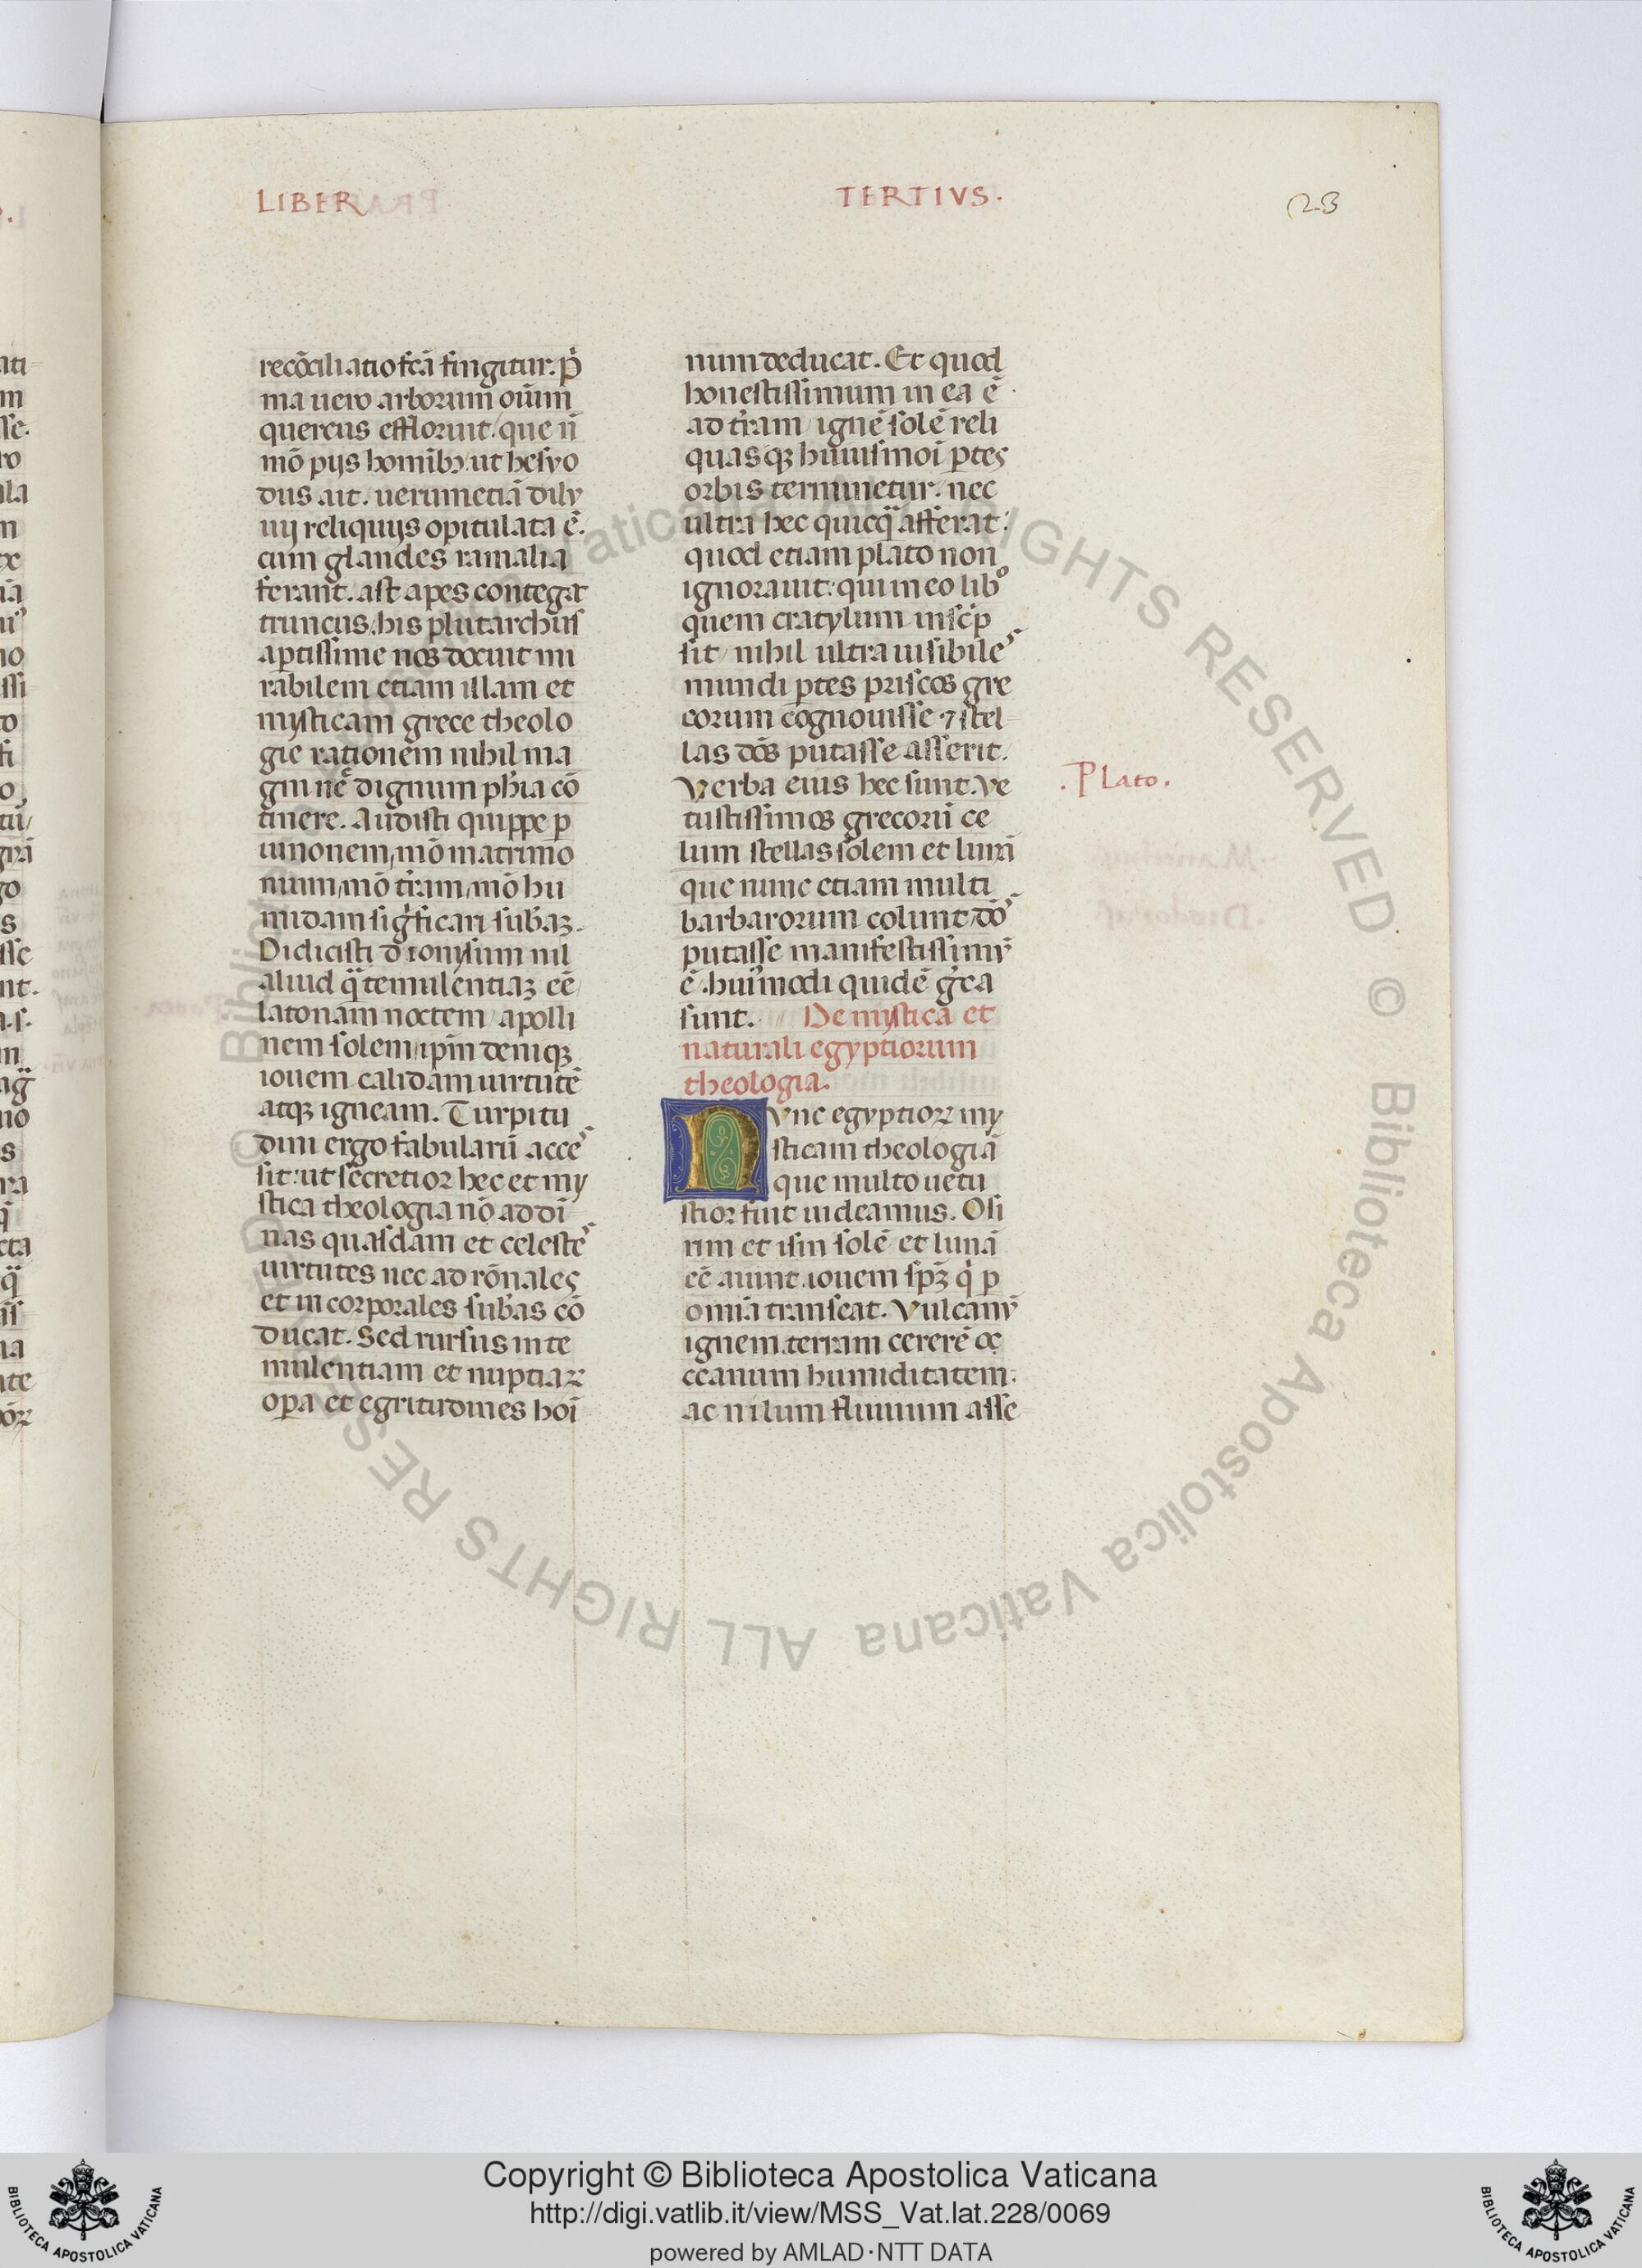 LIBER TERTIVS.
23
recōciliatio fcā fingitur. p̄
ma uero arborum oīum
quercus efflorint. que n̄
mō pijs homībꝫ ut hesyo
dus ait. uerum etiā dilu
uij reliquijs opitulata ē.
cum glandes ramalia
ferant. ast apes contegāt
truncus. his plutarchus
aptissime nos docuit mi
rabilem etiam illam et
mysticam grece theolo
gie rationem nihil ma
gni nec dignum phīa cō
tinere. Audisti quippe p
iunonem, mō matrimo
nium, mō t̄ram, mō hu
midam sigficari subāꝫ.
Didicisti dionysium nil
aliud q̄ temulentiaꝫ eē
latonam noctem apolli
nem solem, ipm̄ deniqꝫ
iouem calidam uirtutē
atqꝫ igneam. Turpitu
dini ergo fabularū acces
sit: ut secretior hec et my
stica theologia nō ad di
nas quasdam et celestes
uirtutes nec ad rōnales
et in corporales subās cō
ducat. Sed rursus in te
mulentiam et nuptiaꝝ
opa et egritudines hoī
num deducat. Et quod
honestissimum in ea ē
ad t̄ram ignē solē reli
quas qꝫ huiusmoi ptes
orbis terminetur. nec
ultra hec quicq̄ afferat:
quod etiam plato non
ignorauit: qui in eo libº
quem cratylum inscīp
sit nihil ultra uisibiles
mundi ptes priscos gre
corum cognouisse ⁊ stel
las dōs putasse asserit.
Verba eius hec sunt. Ve
tustissimos grecorū ce
lum stellas solem et lunā
que nunc etiam multi
barbarorum colunt, dōs
putasse manifestissimū
ē. huīmodi quidē greca
sunt. De mystica et
naturali egyptiorum
theologia.
Nvnc egyptioꝝ my
sticam theologiā
que multo uetu
stior fuit uideamus. Osi
rim et isin solē et lunā
eē aiunt. iouem spꝫ q̇ p
omnia transeat. Vulcanū
ignem. terram cererē oc
ceanum humiditatem:
ac nilum fluuium asse
.Plato.
Copyright © Biblioteca Apostolica Vaticana
http://digi.vatlib.it/view/MSS_Vat.lat.228/0069
powered by AMLAD·NTT DATA
BIBLIOTECA APOSTOLICA VATICANA
BIBLIOTECA APOSTOLICA VATICANA
© Biblioteca Apostolica Vaticana ALL RIGHTS RESERVED
© Biblioteca Apostolica Vaticana ALL RIGHTS RESERVED